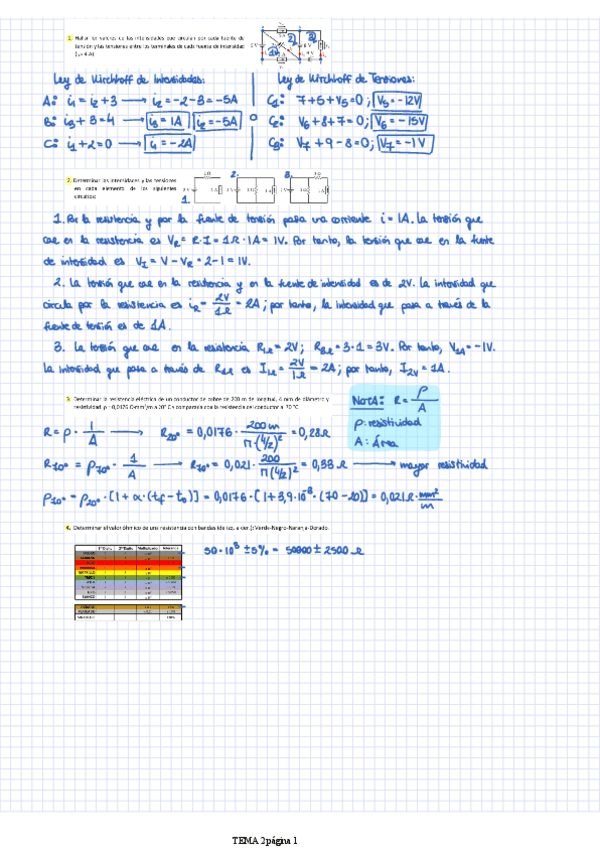 1. Hallar los valores de las intensidades que circulan por cada fuente de
tensión y las tensiones entre los terminales de cada fuente de intensidad
Ley de Kirchhoff de Intensidades:
Ley de Kirchhoff de Tensiones:
A: i₁ = i₂ + 3 → i₂ = -2 - 3 = -5A
C₁: 7+5+V₅=0; V₅ = -12V
B: i₃ + 3 = 4 → i₃ = 1A i₂ = -5A
C₂: V₆+8+7=0; V₆ = -15V
C: i₁ + 2 = 0 → i₁ = -2A
C₃: V₇+9-8=0; V₇ = -1V
2. Determinar las intensidades y las tensiones
en cada elemento de los siguientes
circuitos:
1.
2.
3.
1. Por la resistencia y por la fuente de tensión pasa una corriente i = 1A. La tensión que
cae en la resistencia es V_R = R·I = 1Ω·1A = 1V. Por tanto, la tensión que cae en la fuente
de intensidad es V_I = V - V_R = 2-1 = 1V.
2. La tensión que cae en la resistencia y en la fuente de intensidad es de 2V. La intensidad que
circula por la resistencia es i_R = 2V/1Ω = 2A; por tanto, la intensidad que pasa a través de la
fuente de tensión es de 1A.
3. La tensión que cae en la resistencia R₁Ω = 2V; R₃Ω = 3·1 = 3V. Por tanto, V₁A = -1V.
La intensidad que pasa a través de R₁Ω es I₁Ω = 2V/1Ω = 2A; por tanto, I₂V = 1A.
3. Determinar la resistencia eléctrica de un conductor de cobre de 200 m de longitud, 4 mm de diámetro y
resistividad ρ = 0,0176 Ω·mm²/m a 20° C y compararla con la resistencia del conductor a 70 °C
NOTA: R = ρ/A
ρ: resistividad
A: Área
R = ρ · l/A → R₂₀° = 0,0176 · 200m/π(4/2)² = 0,28Ω
R₇₀° = ρ₇₀° · 1/A → R₇₀° = 0,021 · 200/π(4/2)² = 0,33Ω → mayor resistividad
ρ₇₀° = ρ₂₀° · [1+α·(tf - t₀)] = 0,0176 · [1+3,9·10⁻³·(70-20)] = 0,021Ω·mm²/m
4. Determinar el valor óhmico de una resistencia con bandas (de izq. a der.): Verde-Negro-Naranja-Dorado.
1ª Dígito 2ª Dígito Multiplicador Tolerancia
50·10³ ±5% = 50000 ± 2500 Ω
TEMA 2página 1